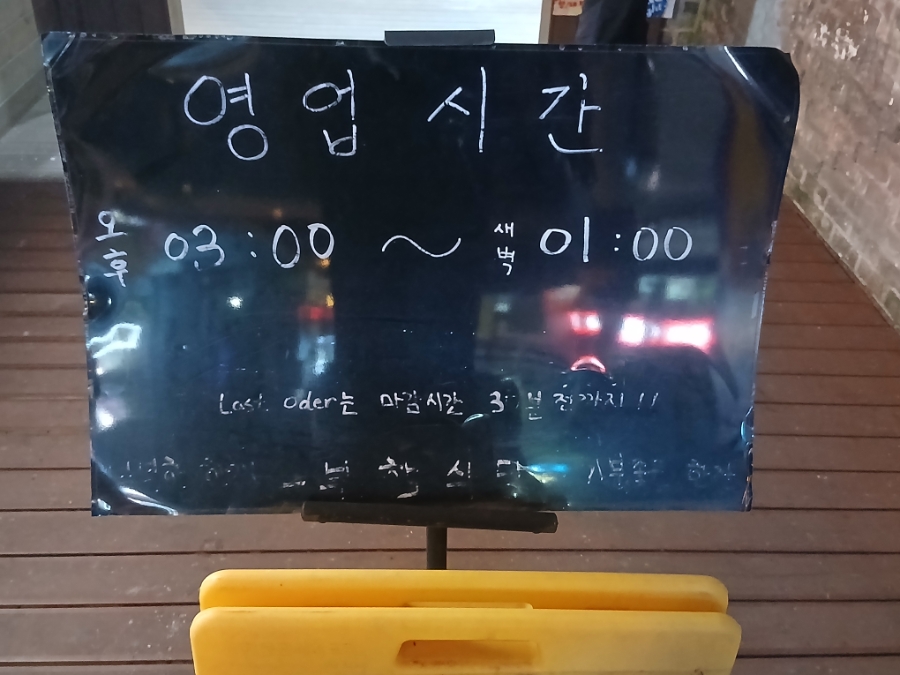 영업시간
오후 03:00 ~ 새벽 01:00
Last oder는 마감시간 분전까지!!
식당